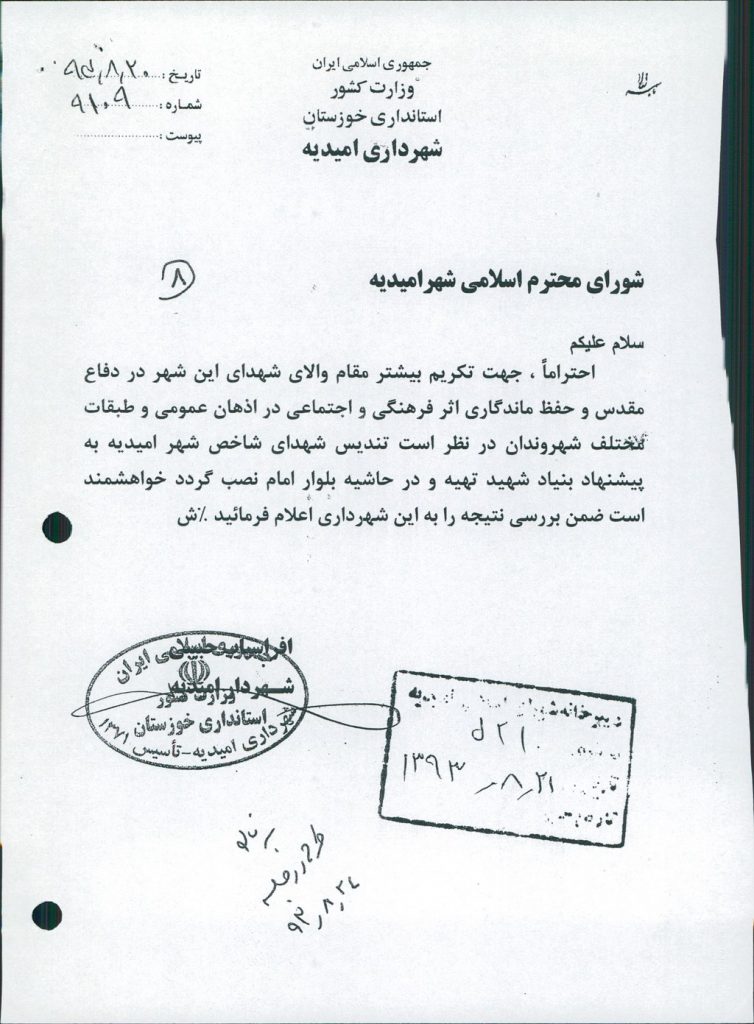 جمهوری اسلامی ایران
وزارت کشور
استانداری خوزستان
شهرداری امیدیه
تاریخ : ۹۳٫۸٫۲۰
شماره : ۹۱۰۹
پیوست :
شورای محترم اسلامی شهر امیدیه
۸
سلام علیکم
احتراماً ، جهت تکریم بیشتر مقام والای شهدای این شهر در دفاع
مقدس و حفظ ماندگاری اثر فرهنگی و اجتماعی در اذهان عمومی و طبقات
مختلف شهروندان در نظر است تندیس شهدای شاخص شهر امیدیه به
پیشنهاد بنیاد شهید تهیه و در حاشیه بلوار امام نصب گردد خواهشمند
است ضمن بررسی نتیجه را به این شهرداری اعلام فرمائید ٪ش
شهردار امیدیه
ایران
وزارت کشور
استانداری خوزستان
شهرداری امیدیه - تأسیس ۱۳۷۱
دبیرخانه شورای
۱۳۹۳٫۸٫۲۱
طرح در جلسه